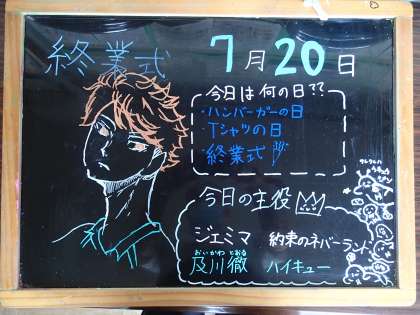 終業式
7月20日
今日は何の日??
・ハンバーガーの日
・Tシャツの日
・終業式
今日の主役
ジェミマ 約束のネバーランド
おいかわ とおる
及川徹 ハイキュー